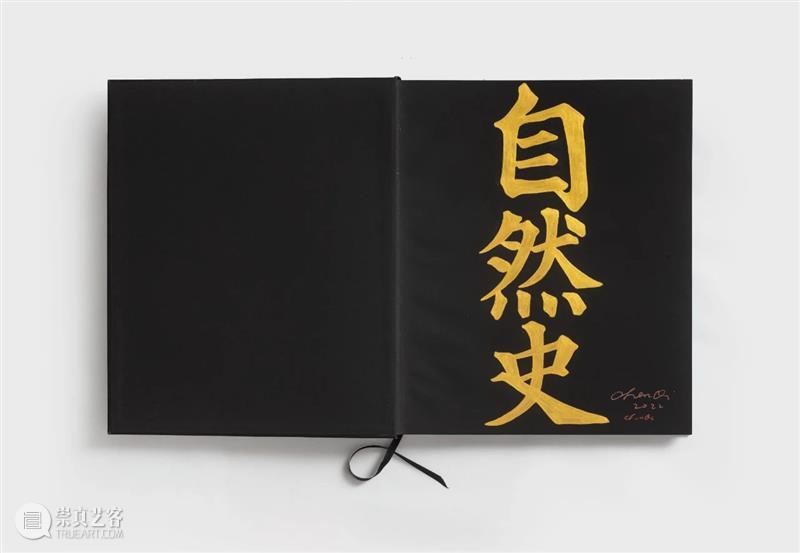 自
然
史
Chen Qi
2022
崇真艺客
TRUEART.COM